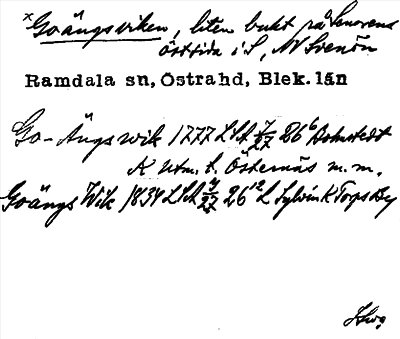 × Goängsviken, liten bukt på Senorens
östsida i S, NV Svenön
Ramdala sn, Östrahd, Blek. län
Go-Ängs wik 1777 LSA 7/27 26⁶ Bohnstedt
K Utm. t. Östernäs m.m.
Goängs Wik 1834 LSA 7/27 26¹² L Sylwin K Torps By